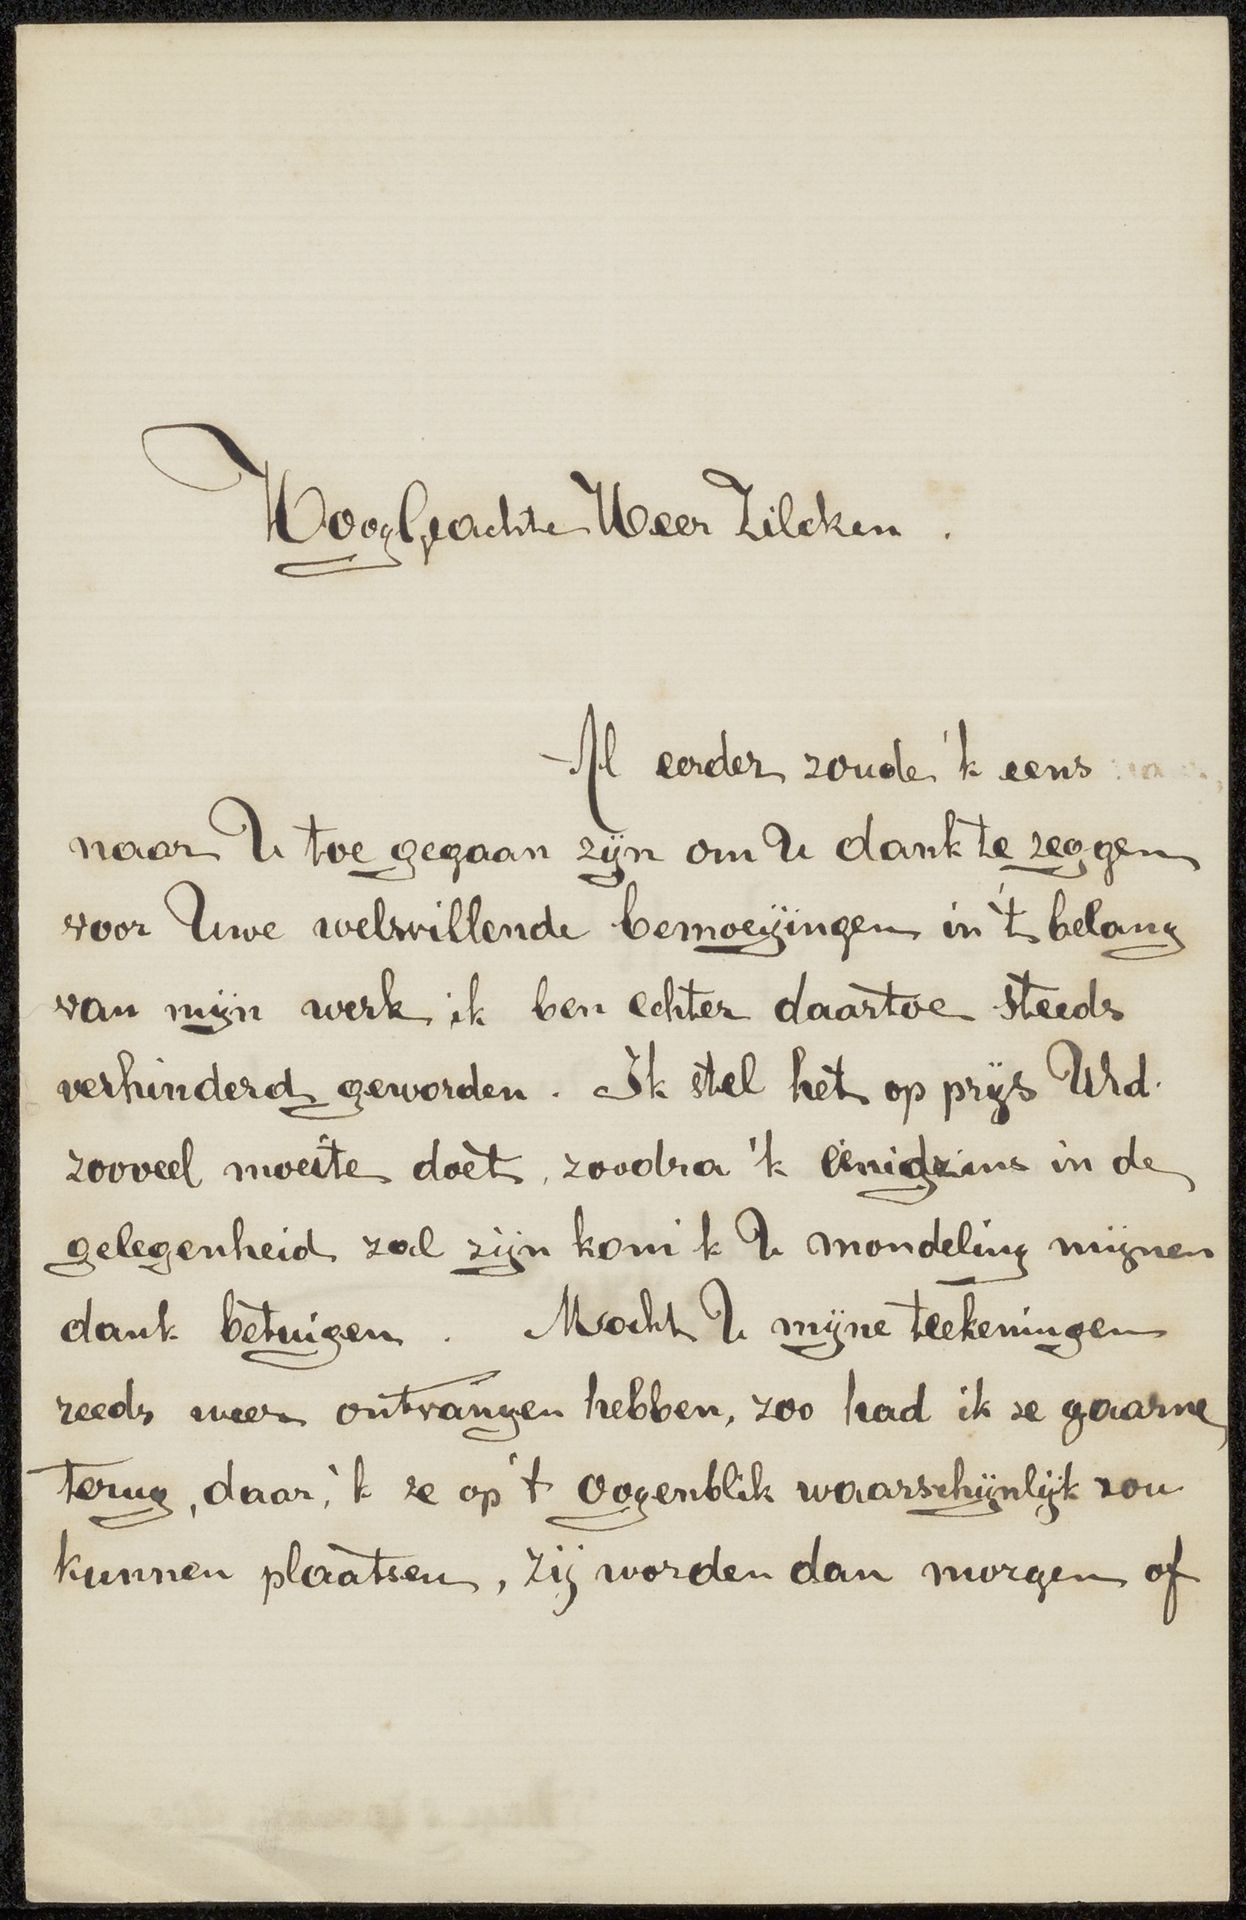 HoogGeachte Heer Zilcken.
Al eerder zoude 'k eens
naar U toe gegaan zijn om U dank te zeggen
voor Uwe welwillende bemoeyingen in 't belang
van mijn werk ik ben echter daartoe steeds
verhinderd geworden. Ik stel het op prijs UEd.
zooveel moeite doet, zoodra 'k eenigzins in de
gelegenheid zal zijn kom 'k U mondeling mijnen
dank betuigen. Mocht U mijne teekeningen
reeds weer ontvangen hebben, zoo had ik ze gaarne
terug, daar 'k ze op 't oogenblik waarschijnlijk zou
kunnen plaatsen, zij worden dan morgen of